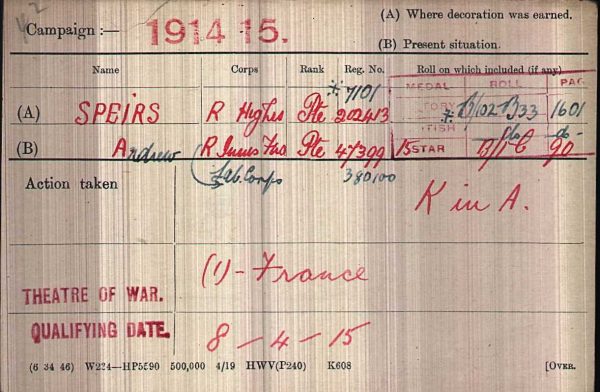 (A) Where decoration was earned.
Campaign :— 1914 15.
(B) Present situation.
Name Corps Rank Reg. No. Roll on which included (if any)
MEDAL ROLL PAGE
* 7101
(A) SPEIRS R Highrs Pte 202413 * B/102 B33 1601
(B) Andrew R Innis Fus Pte 47399 do do
15 STAR B/1 B 90
Lab. Corps 380100
Action taken
K in A.
(1) - France
THEATRE OF WAR.
QUALIFYING DATE. 8 - 4 - 15
(6 34 46) W224—HP5590 500,000 4/19 HWV(P240) K608 [OVER.